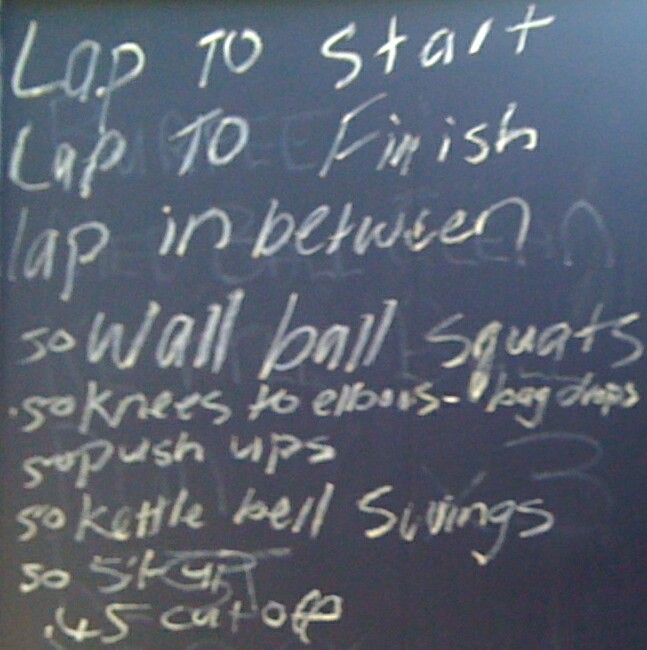 Lap TO Start
Lap TO Finish
lap in between
50 Wall ball Squats
.50 Knees to elbows - bag drops
50 push ups
50 Kettle bell Swings
50 Sit up
.45 cut off